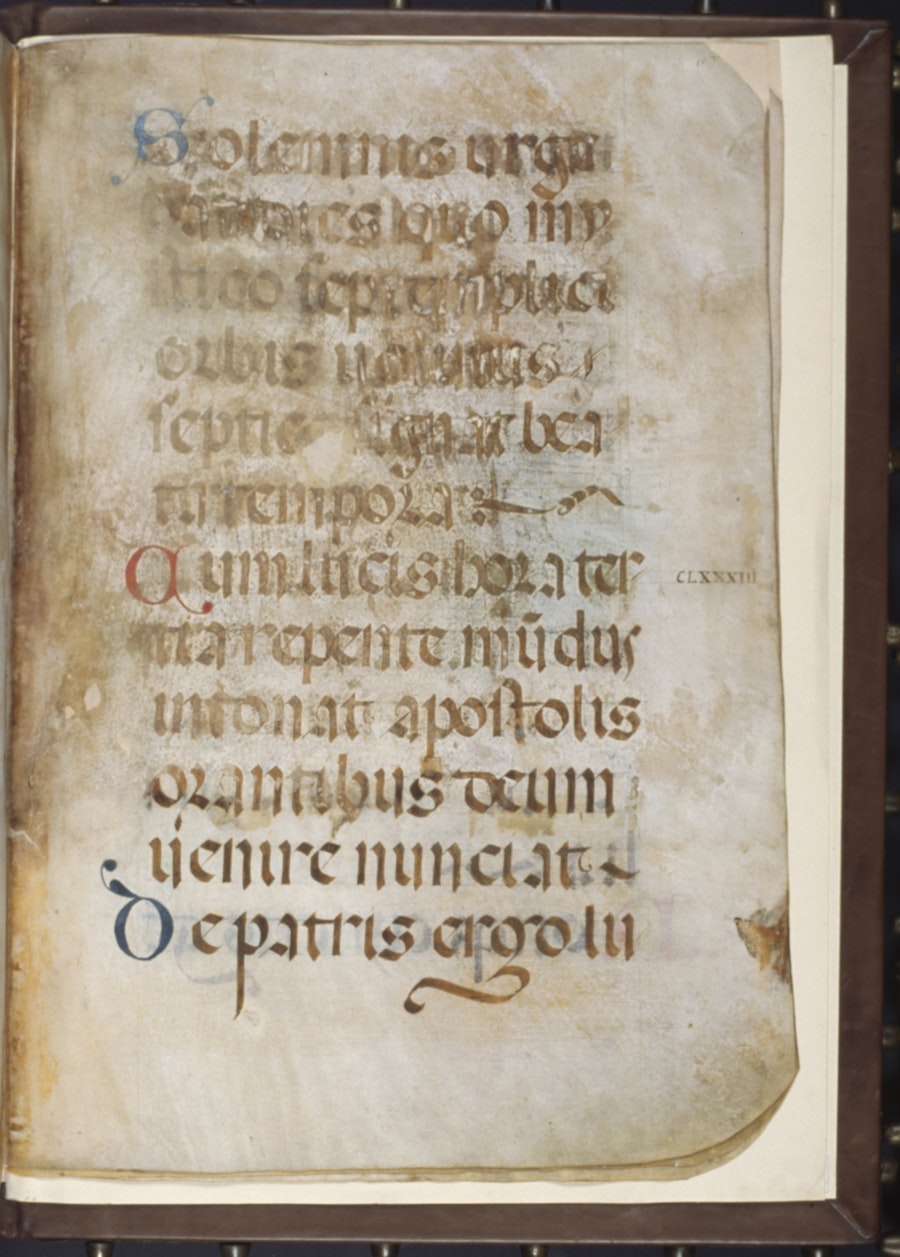 Solemnis urge
bat dies quo my
stico septemplici
orbis uolutus
septies signat bea
ta tempora
Cum lucis hora ter
tia repente mūdus
intonat apostolis
orantibus deum
uenire nunciat
De patris ergo lu
CLXXXIII